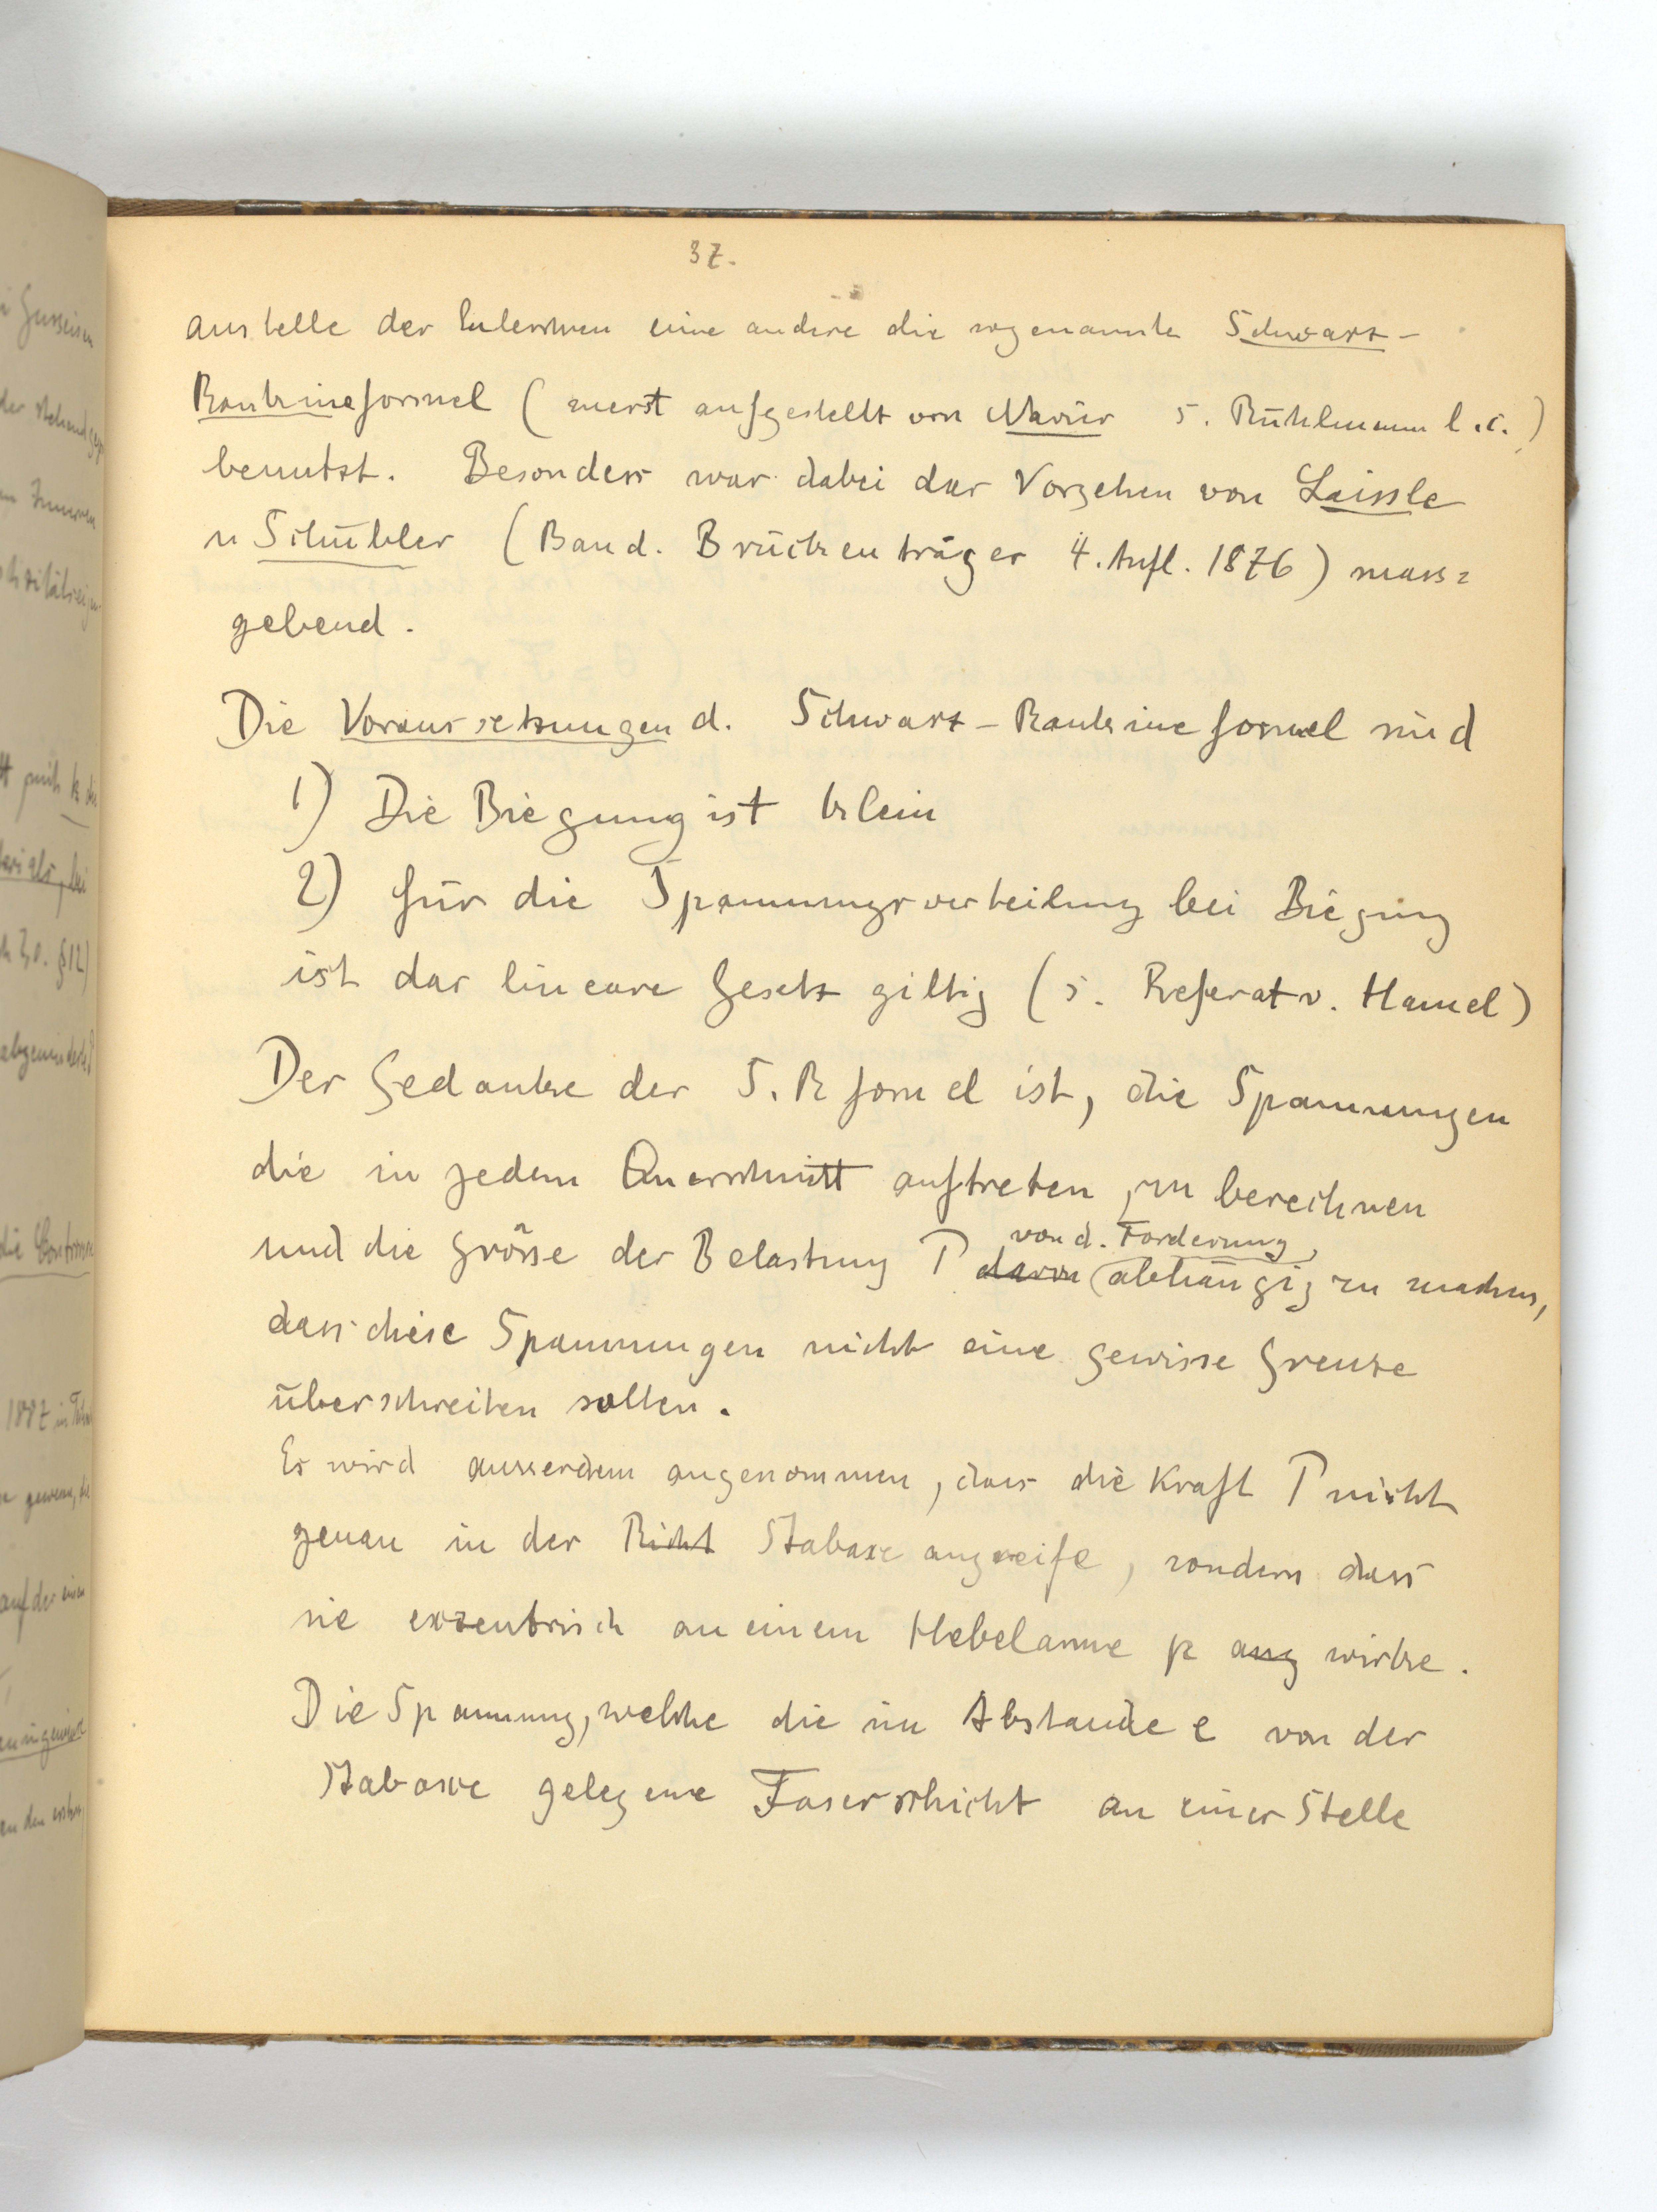 37.
anstelle der Eulerschen eine andere die sogenannte Schwarz-
Rankineformel (zuerst aufgestellt von Navier s. Rühlmann l.c.)
benutzt. Besonders war dabei das Vorgehen von Laissle
u Schübler (Bau d. Brückenträger 4. Aufl. 1876) mass=
gebend.
Die Voraussetzungen d. Schwarz-Rankineformel sind
1) Die Biegung ist klein
2) für die Spannungsverteilung bei Biegung
ist das lineare Gesetz giltig (s. Referat v. Hamel)
Der Gedanke der S.R formel ist, die Spannungen
die in jedem Querschnitt auftreten, zu berechnen
von d. Forderung,
und die Grösse der Belastung P davon abhängig zu machen,
dass diese Spannungen nicht eine gewisse Grenze
überschreiten sollen.
Es wird ausserdem angenommen, dass die Kraft P nicht
genau in der Richt Stabaxe angreife, sondern dass
sie exzentrisch an einem Hebelarme p ang wirke.
Die Spannung, welche die im Abstande e von der
Stabaxe gelegene Faserschicht an einer Stelle